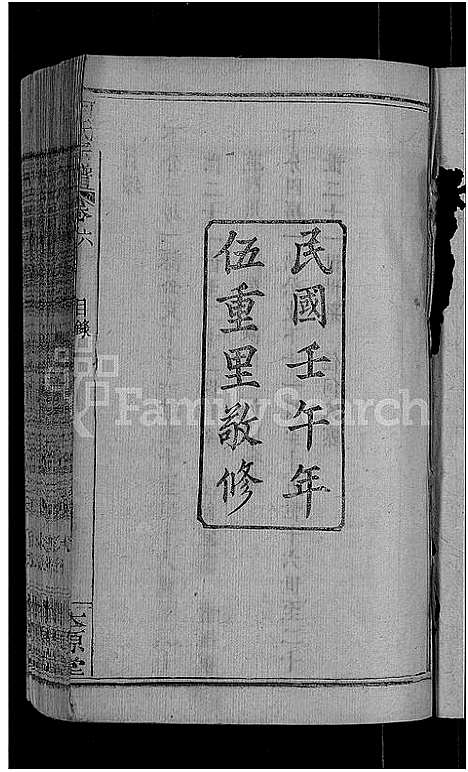 民國壬午年
伍重里敬修
氏宗譜
卷六
目錄
本原堂
FamilySearch